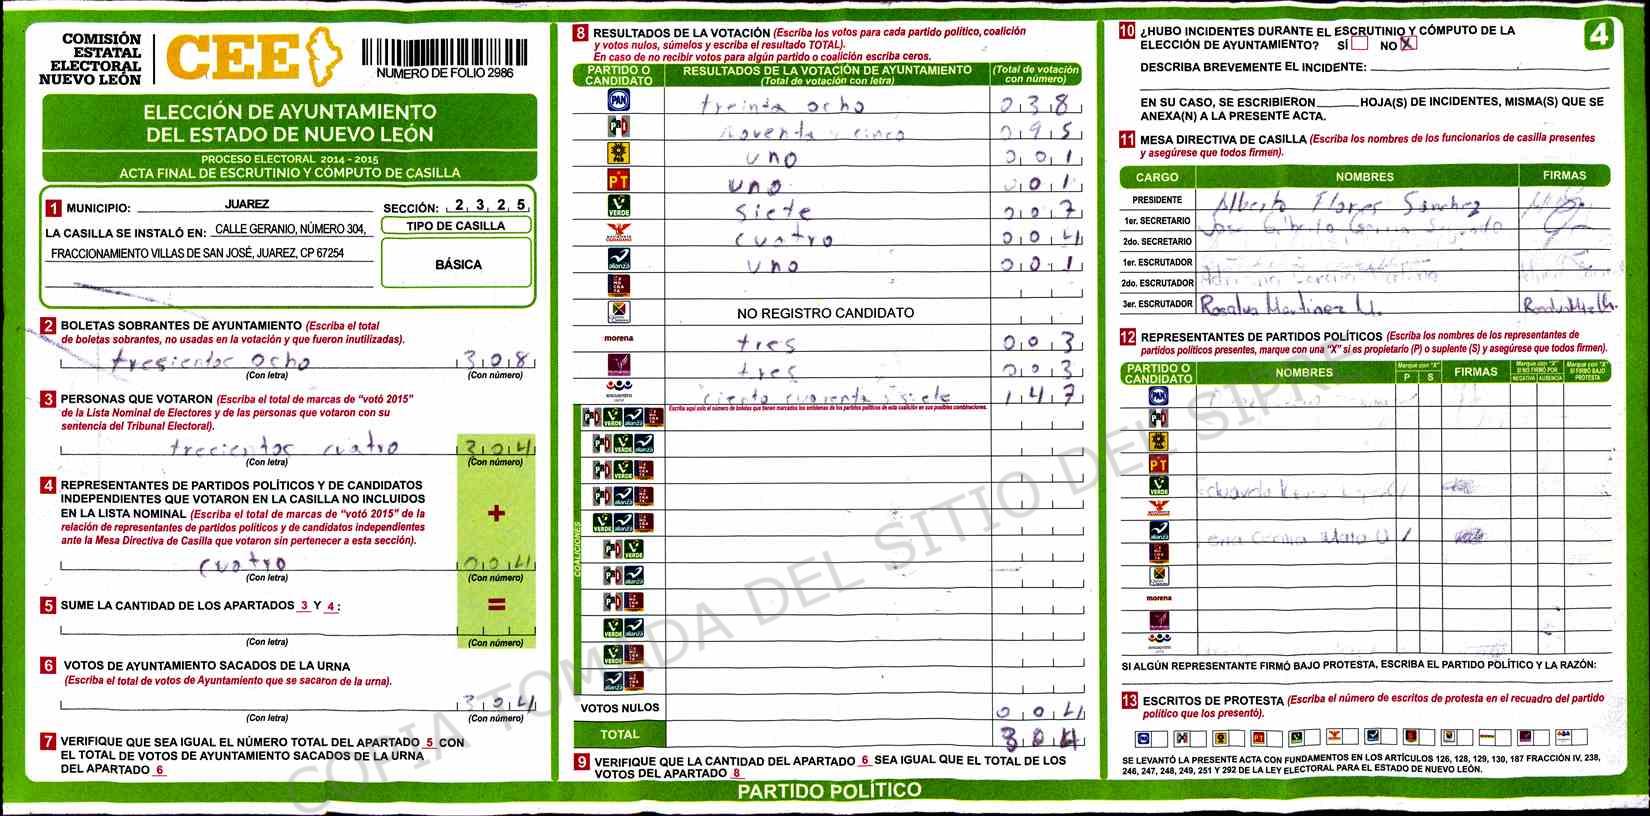 COMISIÓN
ESTATAL
ELECTORAL
NUEVO LEÓN
CEE
NUMERO DE FOLIO 2986
ELECCIÓN DE AYUNTAMIENTO
DEL ESTADO DE NUEVO LEÓN
PROCESO ELECTORAL 2014 - 2015
ACTA FINAL DE ESCRUTINIO Y CÓMPUTO DE CASILLA
1 MUNICIPIO: JUAREZ SECCIÓN: 2 3 2 5
LA CASILLA SE INSTALÓ EN: CALLE GERANIO, NÚMERO 304,
FRACCIONAMIENTO VILLAS DE SAN JOSÉ, JUAREZ, CP 67254
TIPO DE CASILLA
BÁSICA
2 BOLETAS SOBRANTES DE AYUNTAMIENTO (Escriba el total
de boletas sobrantes, no usadas en la votación y que fueron inutilizadas).
tresientos ocho 3 0 8
(Con letra) (Con número)
3 PERSONAS QUE VOTARON (Escriba el total de marcas de “votó 2015”
de la Lista Nominal de Electores y de las personas que votaron con su
sentencia del Tribunal Electoral).
trecientos cuatro 3 0 4
(Con letra) (Con número)
4 REPRESENTANTES DE PARTIDOS POLÍTICOS Y DE CANDIDATOS
INDEPENDIENTES QUE VOTARON EN LA CASILLA NO INCLUIDOS
EN LA LISTA NOMINAL (Escriba el total de marcas de “votó 2015” de la
relación de representantes de partidos políticos y de candidatos independientes
ante la Mesa Directiva de Casilla que votaron sin pertenecer a esta sección).
+
cuatro 0 0 4
(Con letra) (Con número)
5 SUME LA CANTIDAD DE LOS APARTADOS 3 Y 4:
=
(Con letra) (Con número)
6 VOTOS DE AYUNTAMIENTO SACADOS DE LA URNA
(Escriba el total de votos de Ayuntamiento que se sacaron de la urna).
3 0 4
(Con letra) (Con número)
7 VERIFIQUE QUE SEA IGUAL EL NÚMERO TOTAL DEL APARTADO 5 CON
EL TOTAL DE VOTOS DE AYUNTAMIENTO SACADOS DE LA URNA
DEL APARTADO 6
8 RESULTADOS DE LA VOTACIÓN (Escriba los votos para cada partido político, coalición
y votos nulos, súmelos y escriba el resultado TOTAL).
En caso de no recibir votos para algún partido o coalición escriba ceros.
PARTIDO O
CANDIDATO
RESULTADOS DE LA VOTACIÓN DE AYUNTAMIENTO
(Total de votación con letra)
(Total de votación
con número)
PAN treinta ocho 0 3 8
PRI noventa y cinco 0 9 5
PRD uno 0 0 1
PT uno 0 0 1
VERDE siete 0 0 7
cuatro 0 0 4
alianza uno 0 0 1
NO REGISTRO CANDIDATO
morena tres 0 0 3
tres 0 0 3
encuentro ciento cuarenta y siete 1 4 7
Escriba aquí solo el número de boletas que tienen marcados los emblemas de los partidos políticos de esta coalición en sus posibles combinaciones.
COALICIONES
VOTOS NULOS 0 0 4
TOTAL 3 0 4
9 VERIFIQUE QUE LA CANTIDAD DEL APARTADO 6 SEA IGUAL QUE EL TOTAL DE LOS
VOTOS DEL APARTADO 8
PARTIDO POLÍTICO
4
10 ¿HUBO INCIDENTES DURANTE EL ESCRUTINIO Y CÓMPUTO DE LA
ELECCIÓN DE AYUNTAMIENTO? SÍ NO X
DESCRIBA BREVEMENTE EL INCIDENTE:
EN SU CASO, SE ESCRIBIERON HOJA(S) DE INCIDENTES, MISMA(S) QUE SE
ANEXA(N) A LA PRESENTE ACTA.
11 MESA DIRECTIVA DE CASILLA (Escriba los nombres de los funcionarios de casilla presentes
y asegúrese que todos firmen).
CARGO NOMBRES FIRMAS
PRESIDENTE Alberto Flores Sánchez
1er. SECRETARIO
2do. SECRETARIO
1er. ESCRUTADOR
2do. ESCRUTADOR
3er. ESCRUTADOR Rosalva Martinez
12 REPRESENTANTES DE PARTIDOS POLÍTICOS (Escriba los nombres de los representantes de
partidos políticos presentes, marque con una “X” si es propietario (P) o suplente (S) y asegúrese que todos firmen).
PARTIDO O
CANDIDATO
NOMBRES
Marque con "X"
P S
FIRMAS
Marque con "X"
SI NO FIRMÓ POR
NEGATIVA AUSENCIA
Marque con "X"
SI FIRMÓ BAJO
PROTESTA
morena
SI ALGÚN REPRESENTANTE FIRMÓ BAJO PROTESTA, ESCRIBA EL PARTIDO POLÍTICO Y LA RAZÓN:
13 ESCRITOS DE PROTESTA (Escriba el número de escritos de protesta en el recuadro del partido
político que los presentó).
SE LEVANTÓ LA PRESENTE ACTA CON FUNDAMENTOS EN LOS ARTÍCULOS 126, 128, 129, 130, 187 FRACCIÓN IV, 238,
246, 247, 248, 249, 251 Y 292 DE LA LEY ELECTORAL PARA EL ESTADO DE NUEVO LEÓN.
COPIA TOMADA DEL SITIO DEL SIPRE